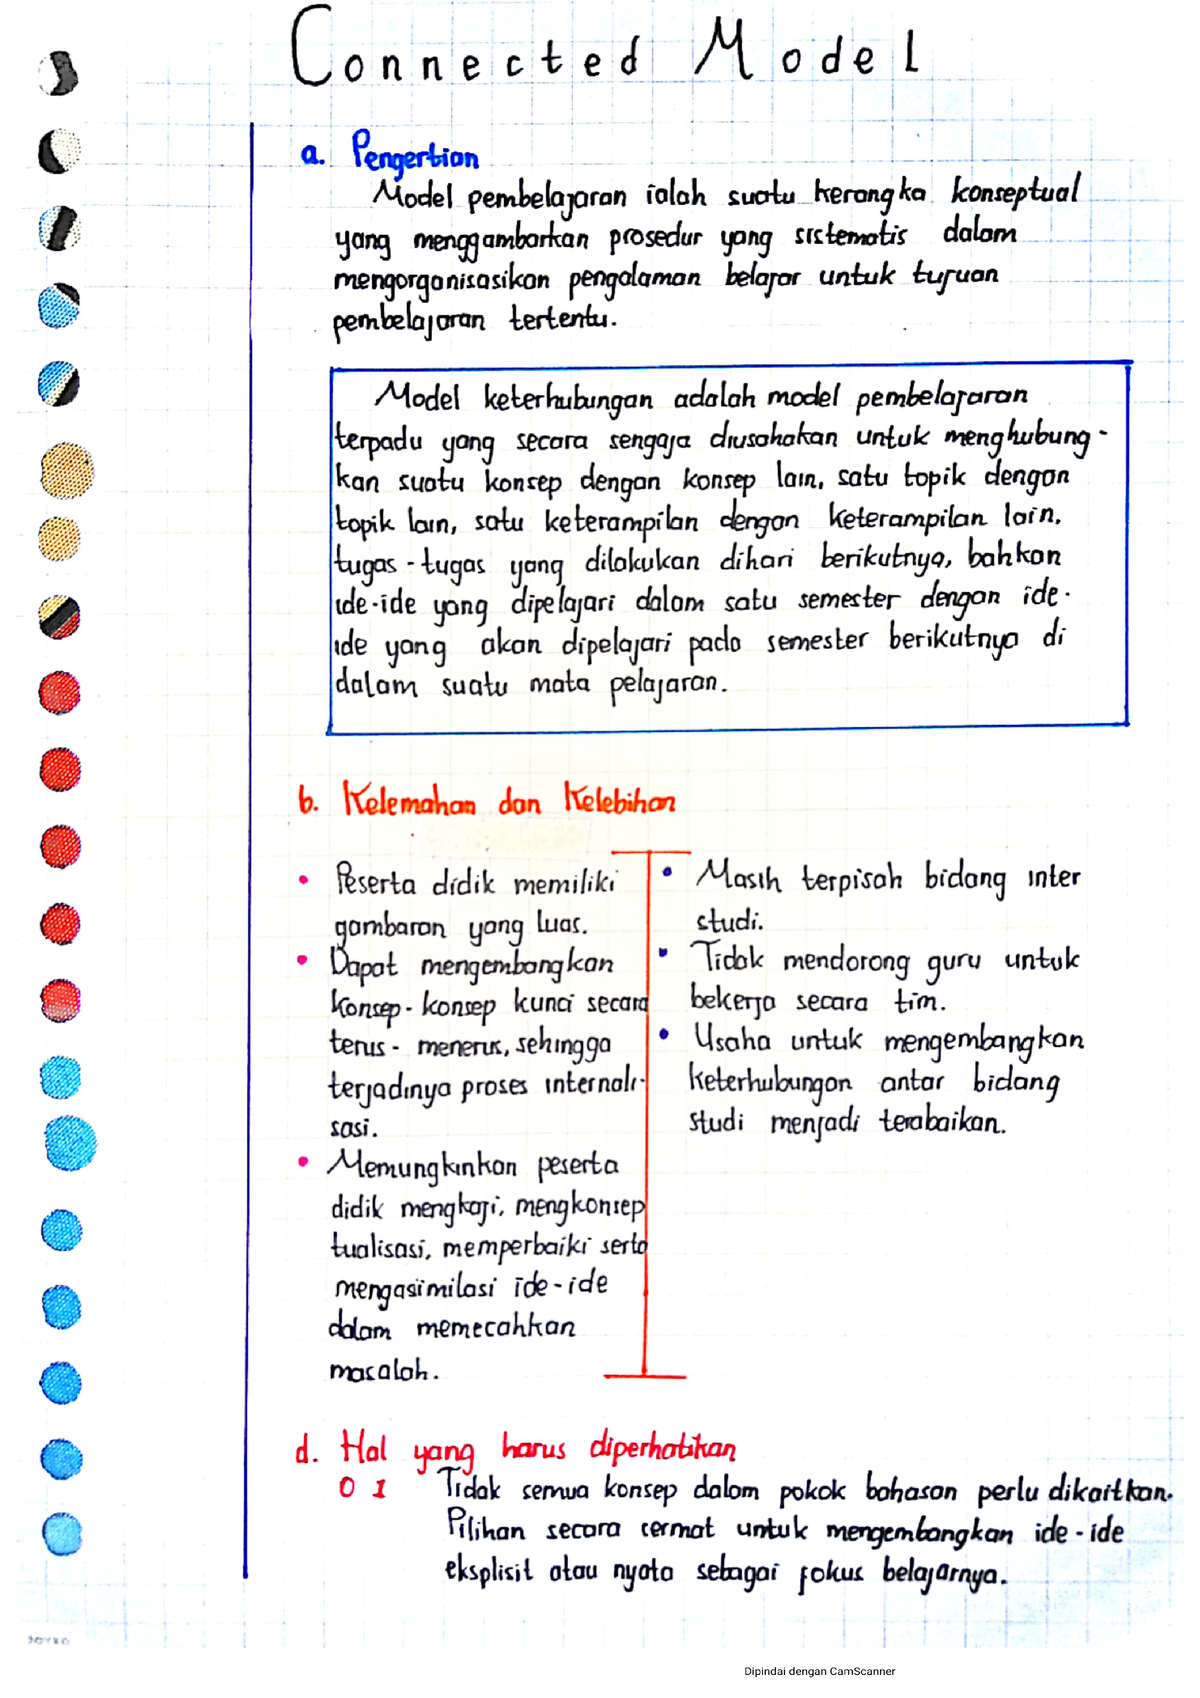 Connected Model
a. Pengertian
Model pembelajaran ialah suatu kerangka konseptual
yang menggambarkan prosedur yang sistematis dalam
mengorganisasikan pengalaman belajar untuk tujuan
pembelajaran tertentu.
Model keterhubungan adalah model pembelajaran
terpadu yang secara sengaja diusahakan untuk menghubung-
kan suatu konsep dengan konsep lain, satu topik dengan
topik lain, satu keterampilan dengan keterampilan lain.
tugas-tugas yang dilakukan dihari berikutnya, bahkan
ide-ide yang dipelajari dalam satu semester dengan ide-
ide yang akan dipelajari pada semester berikutnya di
dalam suatu mata pelajaran.
b. Kelemahan dan Kelebihan
• Peserta didik memiliki
gambaran yang luas.
• Dapat mengembangkan
konsep-konsep kunci secara
terus-menerus, sehingga
terjadinya proses internali-
sasi.
• Memungkinkan peserta
didik mengkaji, mengkonsep
tualisasi, memperbaiki serta
mengasimilasi ide-ide
dalam memecahkan
masalah.
• Masih terpisah bidang inter
studi.
• Tidak mendorong guru untuk
bekerja secara tim.
• Usaha untuk mengembangkan
keterhubungan antar bidang
studi menjadi terabaikan.
d. Hal yang harus diperhatikan
01 Tidak semua konsep dalam pokok bahasan perlu dikaitkan.
Pilihan secara cermat untuk mengembangkan ide-ide
eksplisit atau nyata sebagai fokus belajarnya.
Dipindai dengan CamScanner